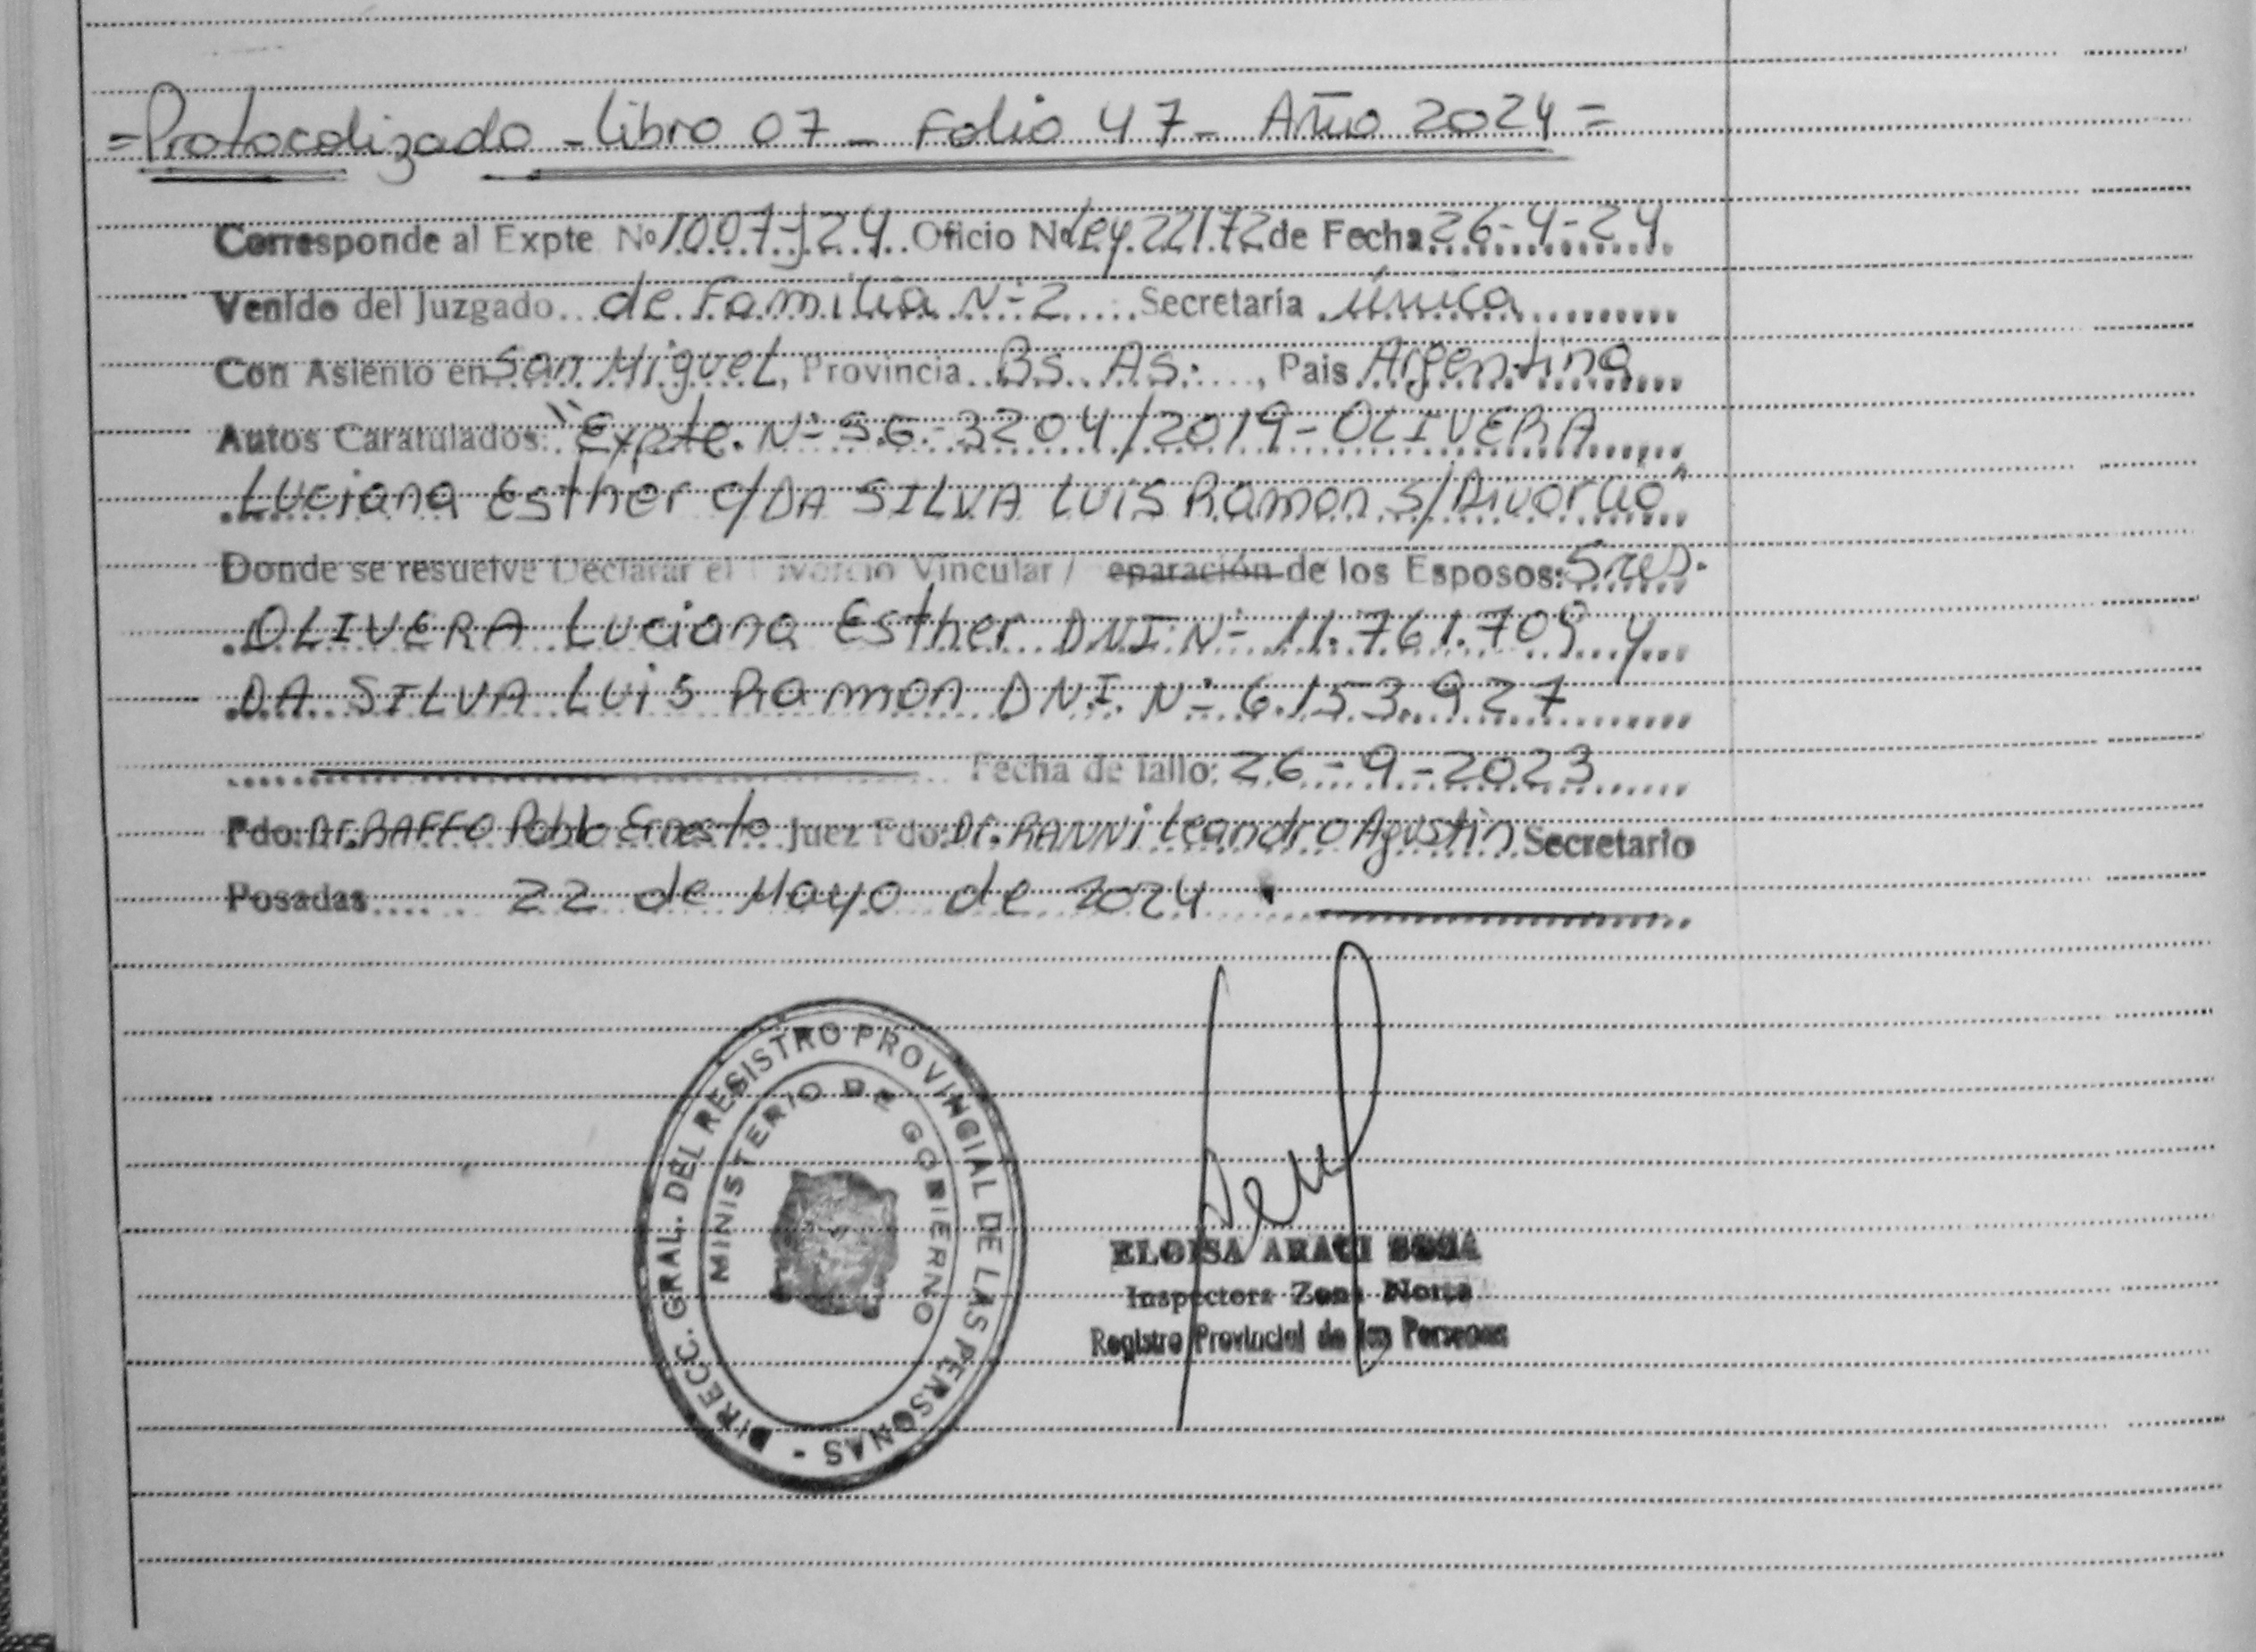 =Protocolizado - Libro 07 - Folio 47 - Año 2024=
Corresponde al Expte. Nº 1007-J-24. Oficio Nº Ley. 22172 de Fecha 26-4-24
Venido del Juzgado de Familia Nº 2 Secretaría única
Con Asiento en San Miguel, Provincia Bs. As. , Pais Argentina
Autos Caratulados: "Expte. Nº S.G.-3204/2019-OLIVERA
Luciana Esther c/DA SILVA Luis Ramon s/Divorcio"
Donde se resuelve Declarar el ivorcio Vincular / eparación de los Esposos: Sres.
OLIVERA Luciana Esther DNI Nº 11.761.709 y
DA SILVA Luis Ramon DNI. Nº 6.153.927
Fecha de fallo: 26-9-2023
Fdo: Dr. RAFFO Pablo Ernesto Juez Fdo: Dr. RANNI Leandro Agustin Secretario
Posadas 22 de Mayo de 2024
DIRECC. GRAL. DEL REGISTRO PROVINCIAL DE LAS PERSONAS -
MINISTERIO DE GOBIERNO
ELOISA ARACI
Inspectora Zona Norte
Registro Provincial de las Personas